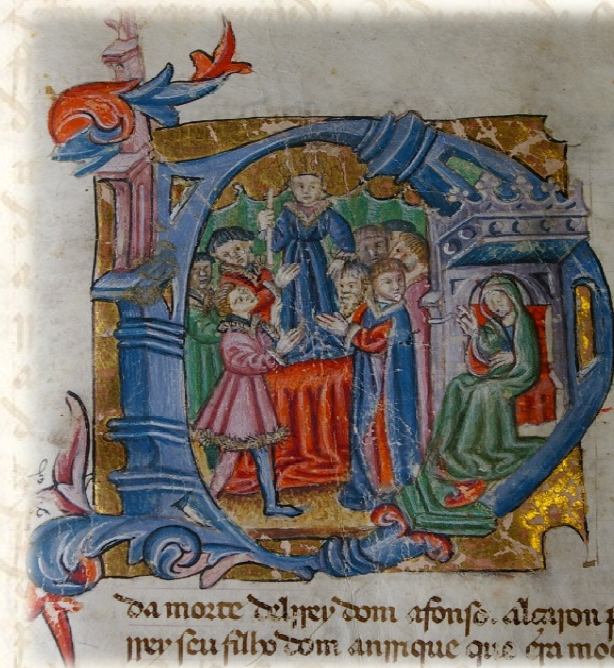 da morte delrrey dom afonso. alçaron
rrey seu filho dom anrrique que era mo